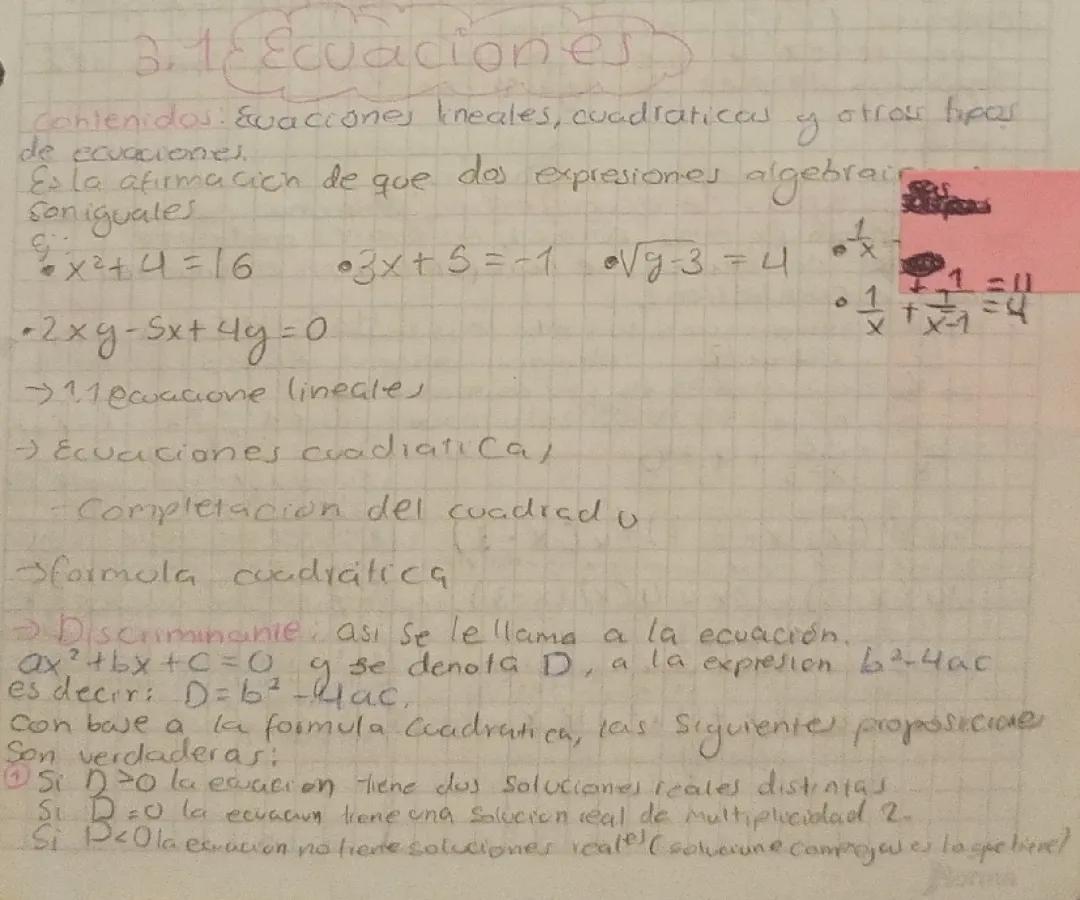 3.1 Ecuaciones
Contenidos: Ecuaciones lineales, cuadraticas y otros tipos
de ecuaciones.
Es la afirmación de que dos expresiones algebrai
son iguales
• x² + 4 = 16 • 3x + 5 = -1 • √y-3 = 4 • 1/x
• 1/x + 1/x-1 = 4
• 2xy - 5x + 4y = 0
→ 1.1 ecuacione lineales
→ Ecuaciones cuadraticas
- Completacion del cuadrado
→ formula cuadrática
→ Discriminante: asi se le llama a la ecuación.
ax² + bx + c = 0 y se denota D, a la expresion b² - 4ac
es decir: D = b² - 4ac.
Con base a la formula cuadratica, las siguientes proposicione
son verdaderas:
① Si D > 0 la ecuacion tiene dos soluciones reales distintas
Si D = 0 la ecuacion tiene una solucion real de multiplicidad 2.
Si D < 0 la ecuacion no tiene soluciones reales (solucione complejas es lo que tiene)
Norma